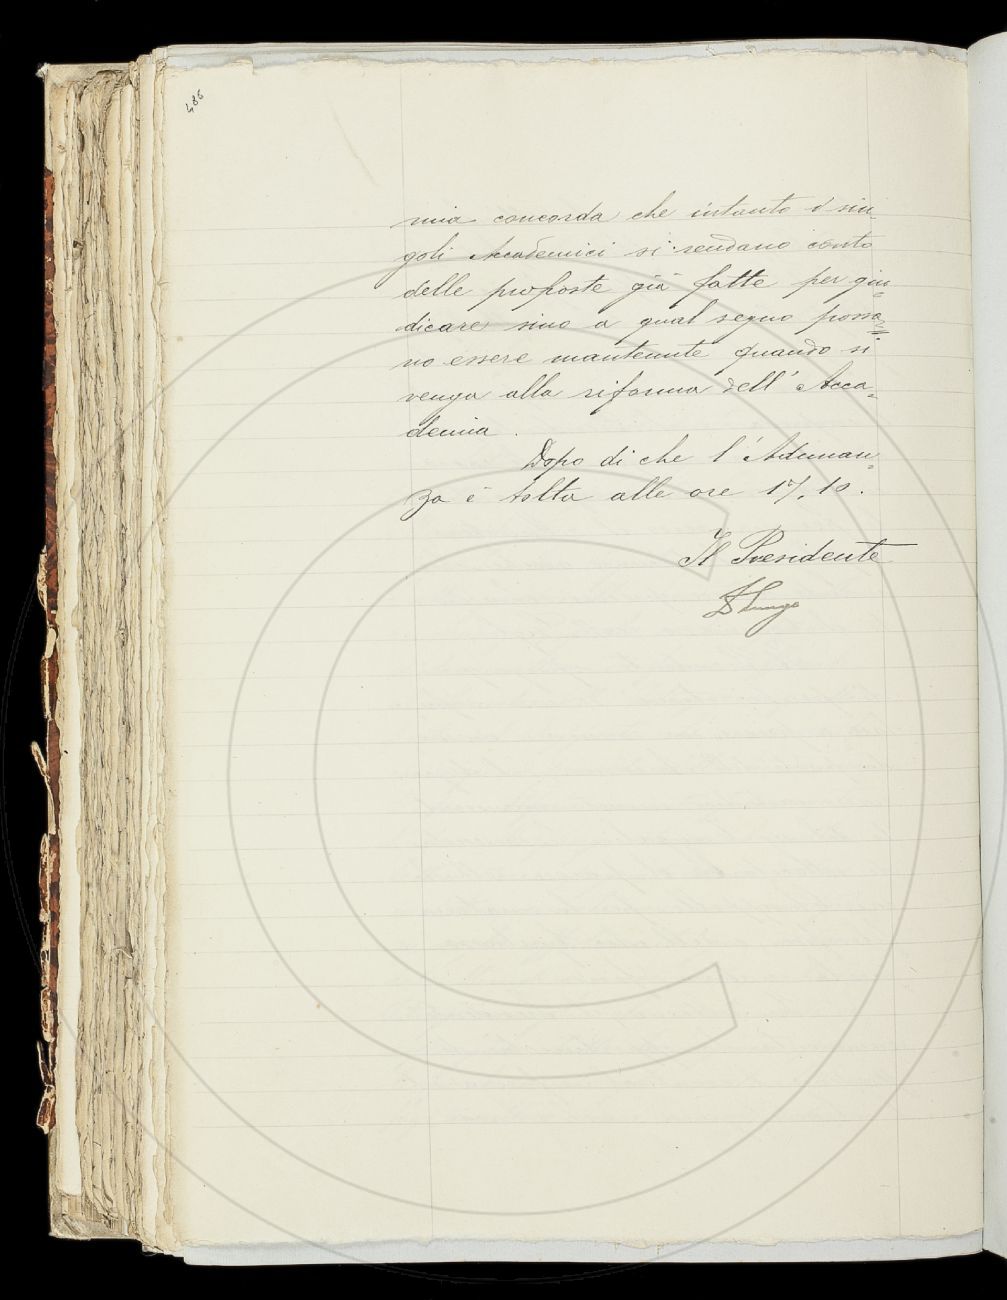 486
mia concorda che intanto i sin-
goli Accademici si rendano conto
delle proposte già fatte per giu=
dicare sino a qual segno possa=
no essere mantenute quando si
venga alla riforma dell' Acca=
demia.
Dopo di che l' Adunan=
za è tolta alle ore 17,10.
Il Presidente